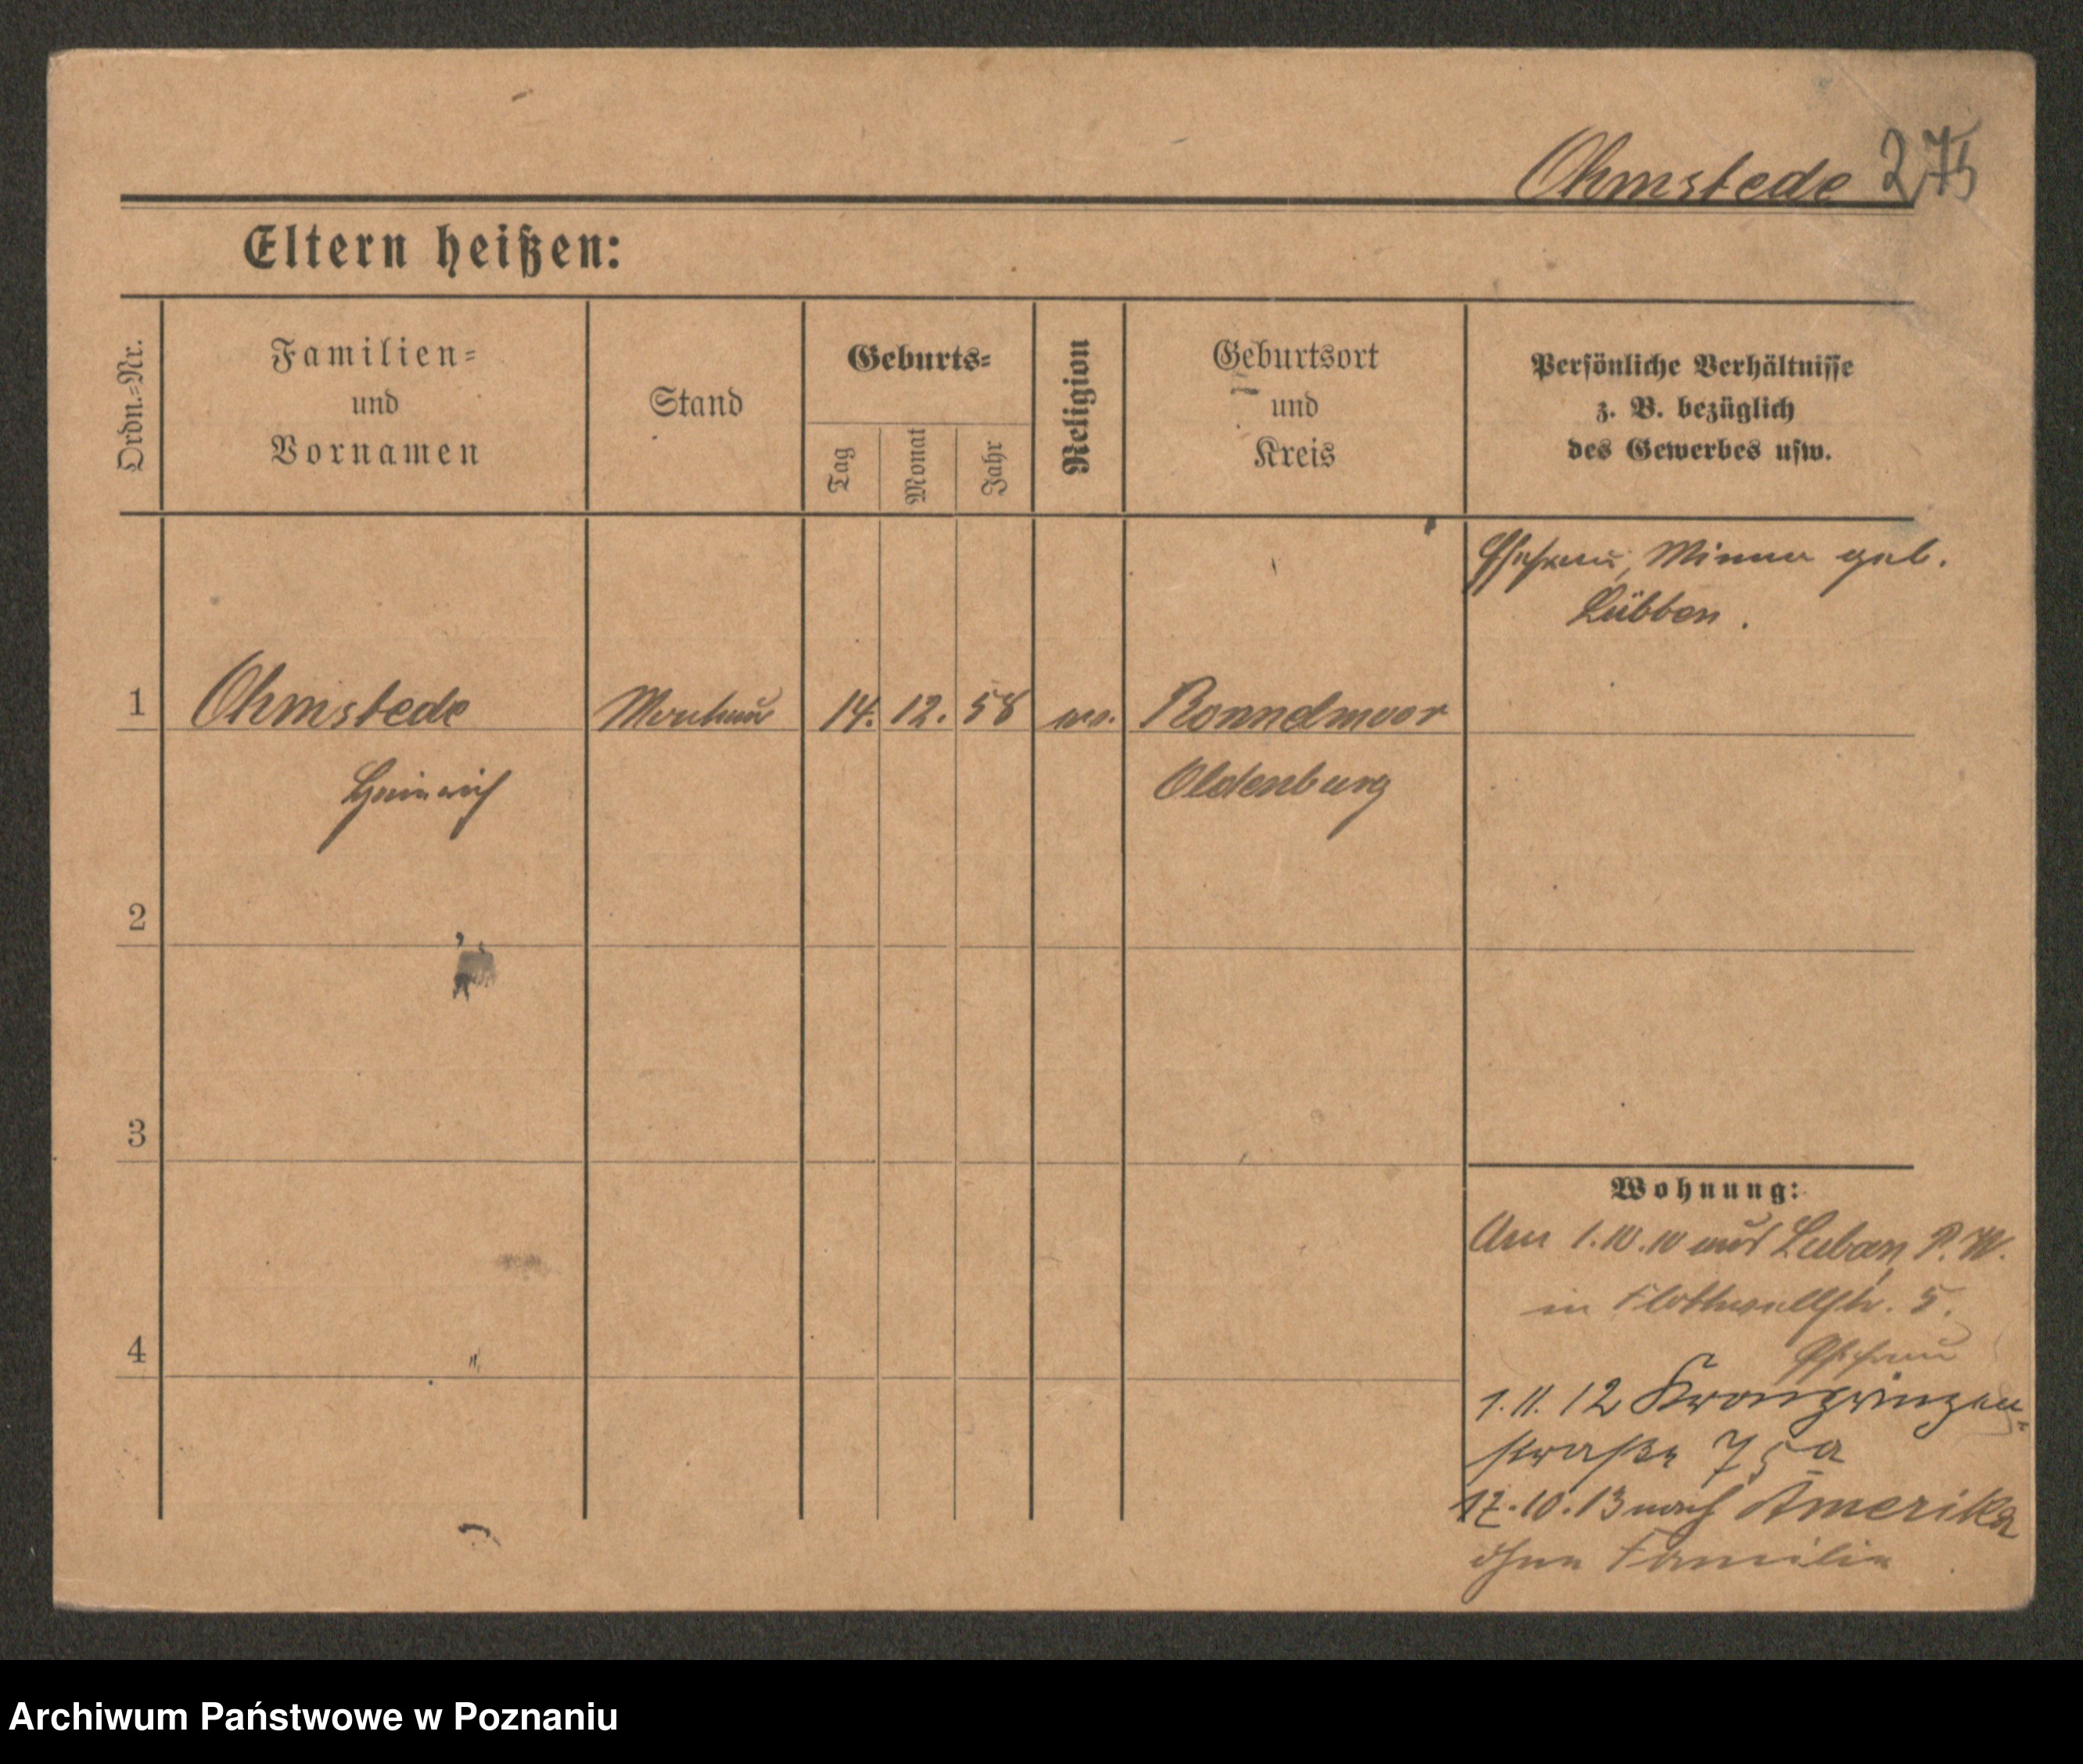 Ohmstede 275
Eltern heißen:
Ordn.-Nr.
Familien-
und
Vornamen
Stand
Geburts-
Tag
Monat
Jahr
Religion
Geburtsort
und
Kreis
Persönliche Verhältnisse
z. B. bezüglich
des Gewerbes usw.
Ehefrau, Minna geb.
Lübben.
1 Ohmstede 14. 12. 58 ev. Ronnelmoor
Heinrich Oldenburg
2
3
4
Wohnung:
Am 1.10.10 aus Luban, P. W.
in Flottwellstr. 5.
Ehefrau
1.11.12 Kronprinzen-
straße 75a
17.10.13 nach Amerika
ohne Familie
Archiwum Państwowe w Poznaniu